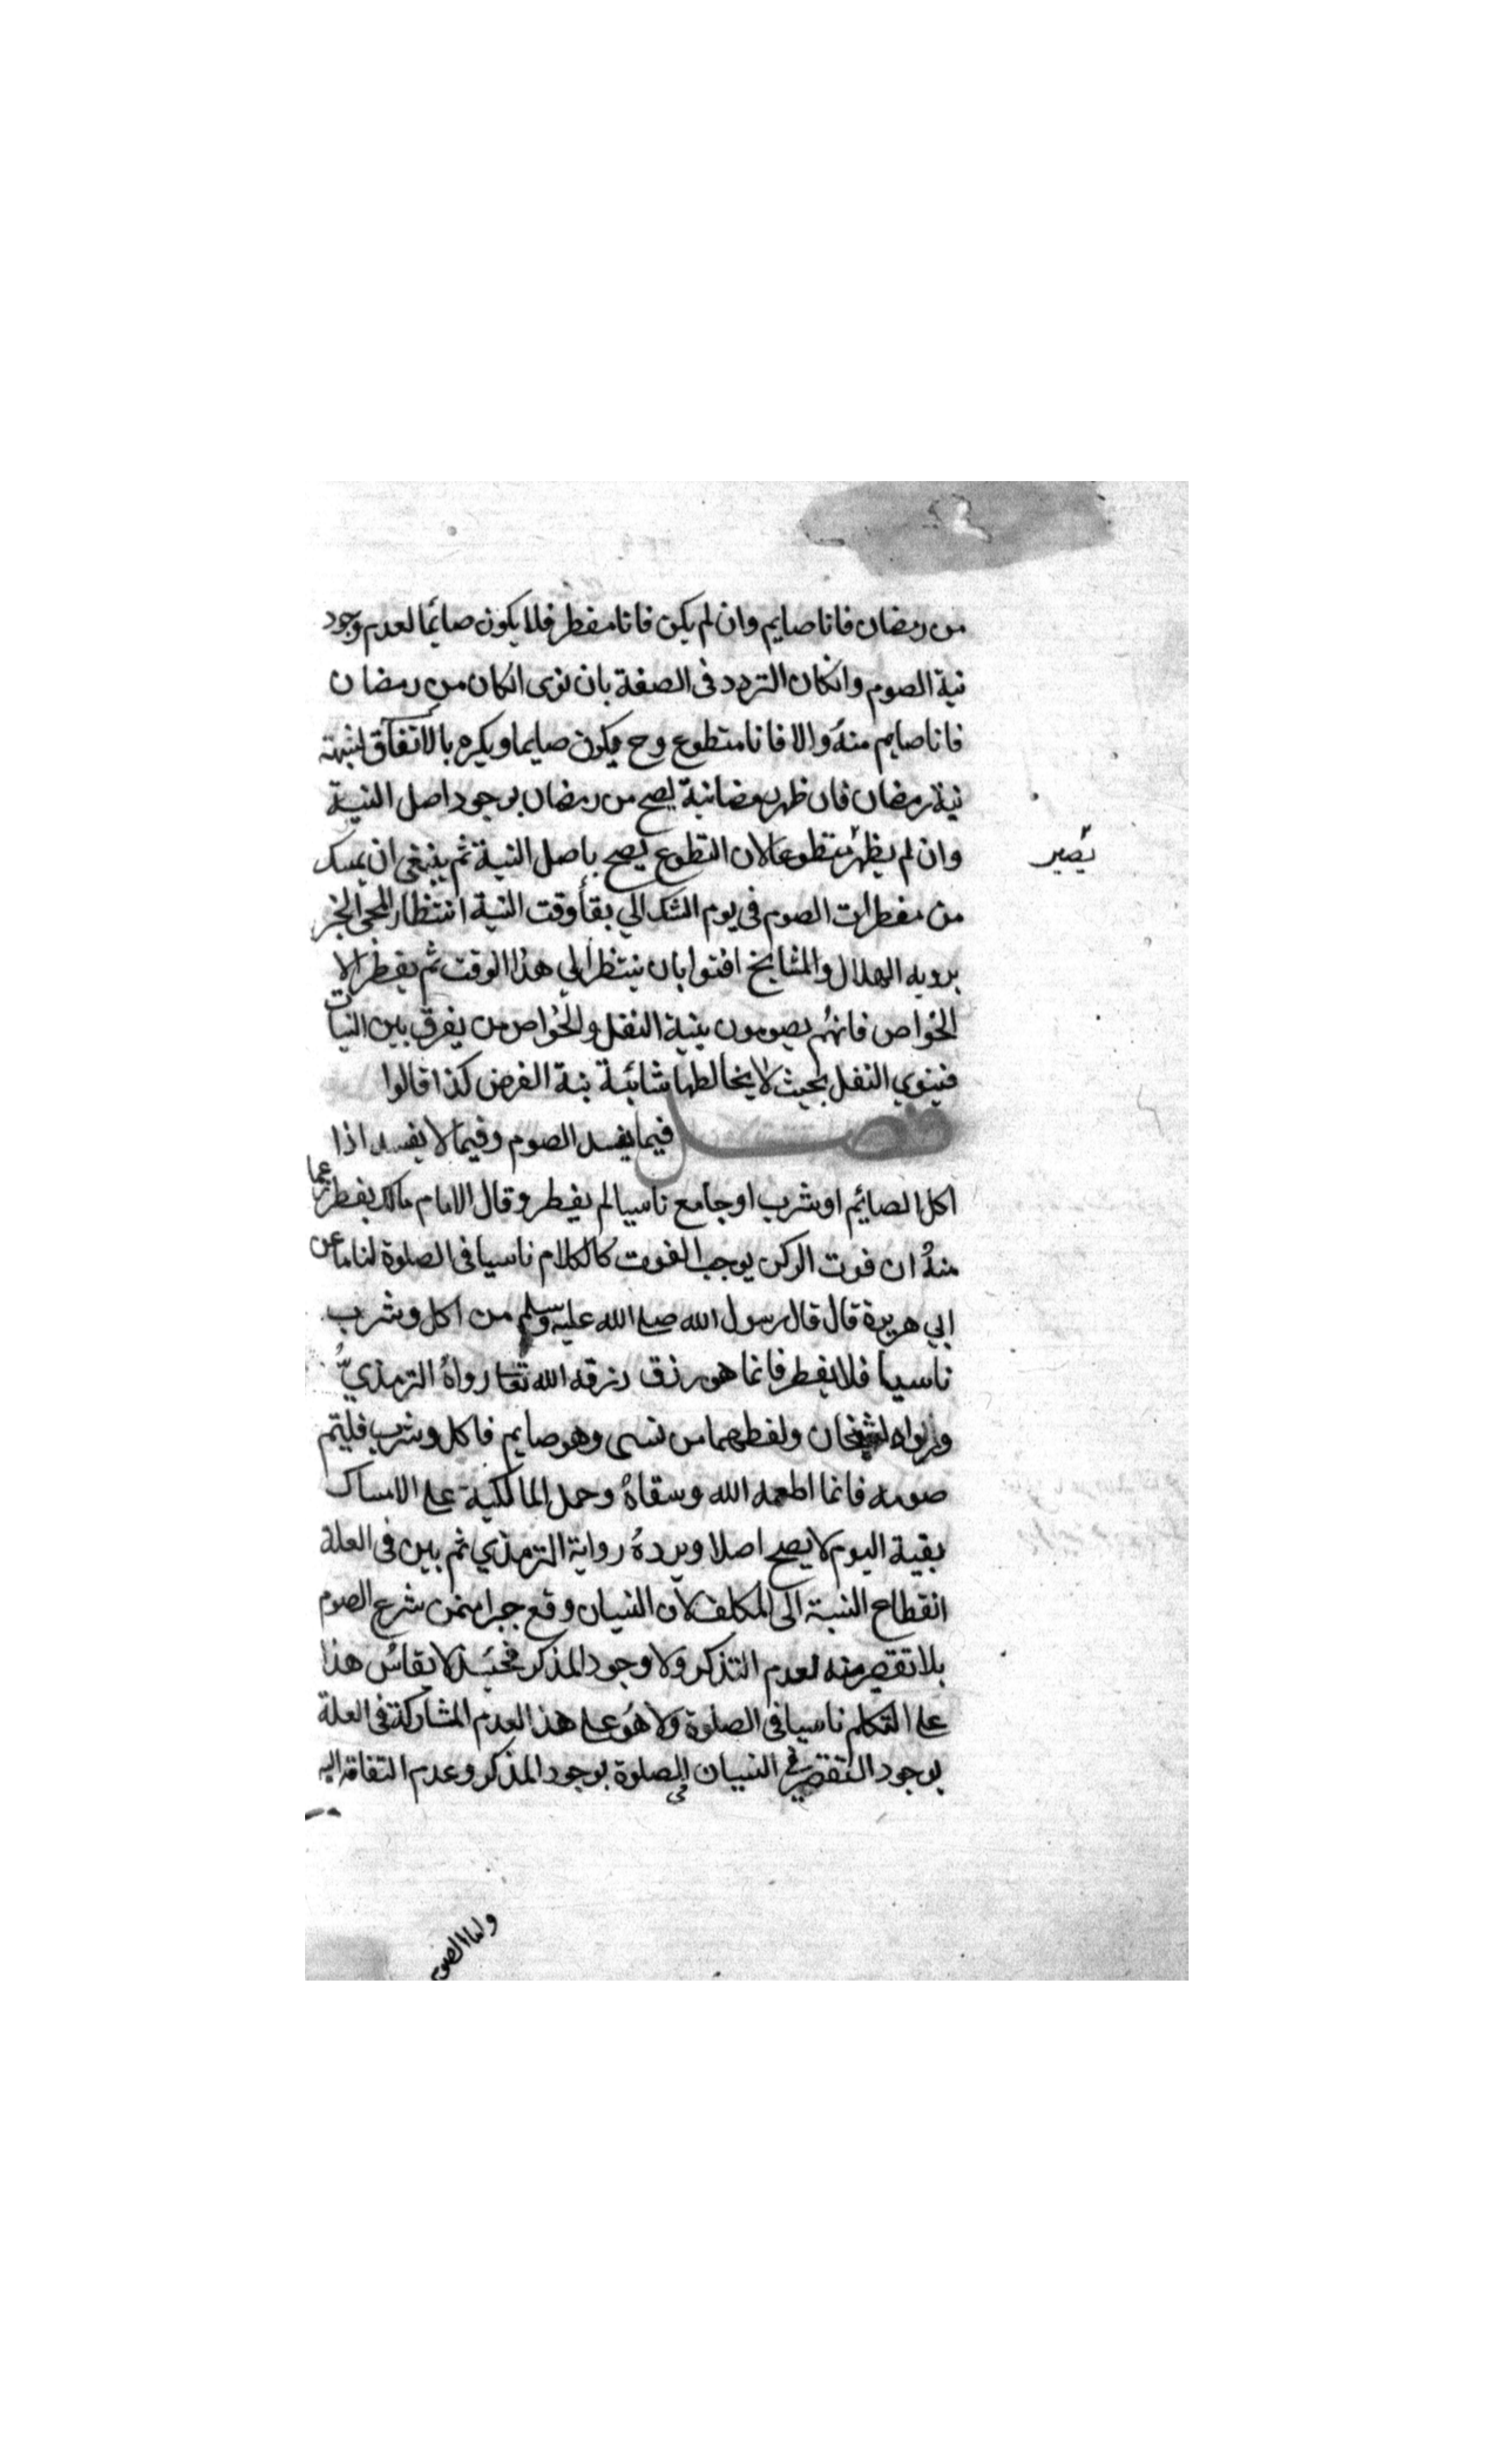 من رمضان فانا صايم وان لم يكن فانا مفطر فلا يكون صائما لعدم وجود
نية الصوم وانكان التردد فى الصفة بان نوى انكان من رمضان
فانا صايم منهُ والا فانا متطوع وح يكون صايما ويكره بالاتفاق لشبهة
نية رمضان فان ظهر رمضانية يصح من رمضان بوجود اصل النية
وان لم يظهر متطوعا لان التطوع يصح باصل النية ثم ينبغى ان يمسك
يصير
من مفطرات الصوم فى يوم الشك الي بقأ وقت النية انتظار المجى الخبر
برويه الهلال والمشايخ افتوا بان ينتظر الي هذا الوقت ثم يفطر الا
الخواص فانهُم يصومون بنية النفل والخواص من يفرق بين النيات
فينوي النفل بحيث لا يخالطها شائبة نية الفرض كذا قالوا
فصل فيما يفسد الصوم وفيما لا يفسد اذا
اكل الصائم او شرب او جامع ناسيا لم يفطر وقال الامام مالك يفطر زعما
منهُ ان فوت الركن يوجب الفوت كالكلام ناسيا فى الصلوة لنا ما عن
ابي هريرة قال قال رسول الله صلى الله عليه وسلم من اكل وشرب
ناسيا فلا يفطر فانما هو رزق رزقه الله تعا رواهُ الترمذيُّ
ورواه الشيخان ولفظهما من نسى وهو صايم فاكل وشرب فليتم
صومه فانما اطعمه الله وسقاهُ وحمل المالكية على الامساك
بقية اليوم لا يصح اصلا ويردهُ رواية الترمذي ثم بين فى العلة
انقطاع النسبة الى المكلف لان النسيان وقع جبرا ممن شرع الصوم
بلا تقصير منه لعدم التذكر ولا وجود المذكر فحينئذ لا يقاسُ هذا
على التكلم ناسيا فى الصلوة ولا هُو على هذا لعدم المشاركة فى العلة
بوجود التقصير فى النسيان فى الصلوة بوجود المذكر وعدم التفاته اليه
ولما الصوم